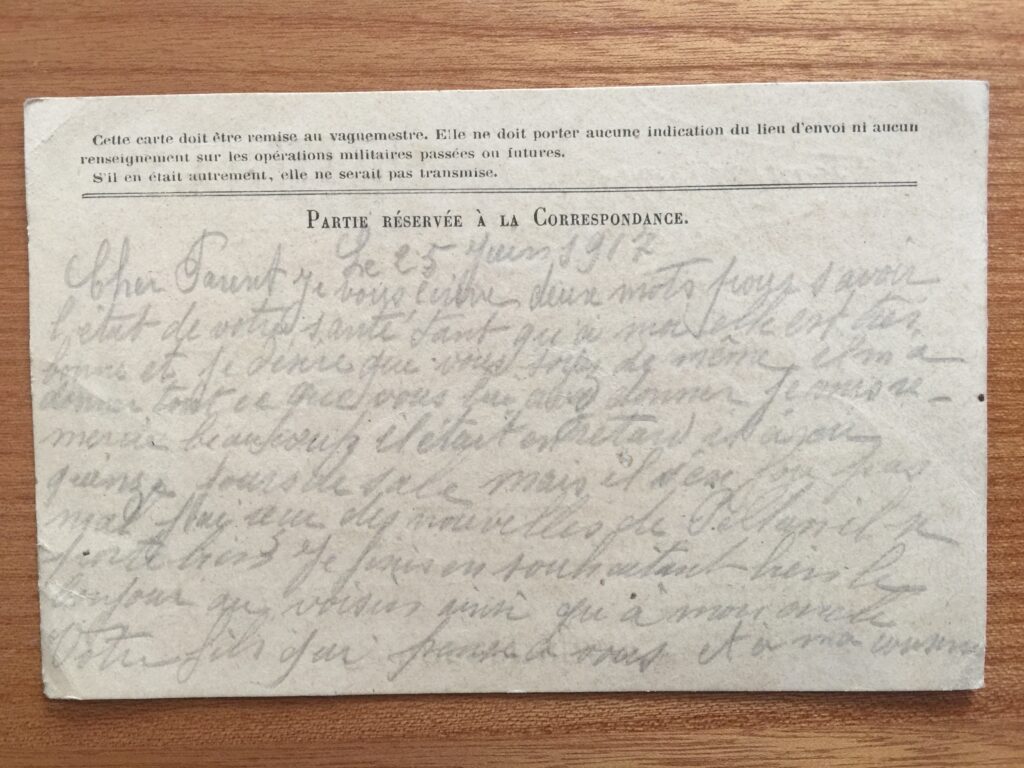 Cette carte doit être remise au vaguemestre. Elle ne doit porter aucune indication du lieu d'envoi ni aucun
renseignement sur les opérations militaires passées ou futures.
S'il en était autrement, elle ne serait pas transmise.
PARTIE RÉSERVÉE À LA CORRESPONDANCE.
Le 25 Juin 1917
Cher Parent Je vous deux mots pour savoir
l'état de votre santé tant qu'a moi elle est très
bonne et je désire que vous de même il m'a
donner tout ce que vous lui avez donner Je vous re-
mercie beaucoup il était en retard il à
quinze jours de mais il s'en pas
mal j'ai des nouvelles de il se
porte bien Je finis en souhaitant bien le
bonjour au voisin ainsi qu'à mon oncle
Votre fils qui panse à vous et à ma